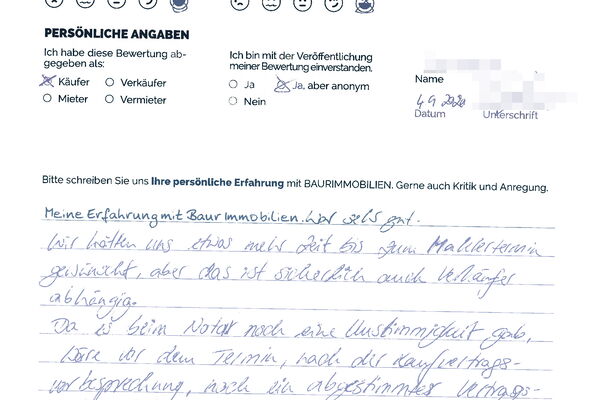 PERSÖNLICHE ANGABEN
Ich habe diese Bewertung ab-
gegeben als:
Käufer
Verkäufer
Mieter
Vermieter
Ich bin mit der Veröffentlichung
meiner Bewertung einverstanden.
Ja
Ja, aber anonym
Nein
Name
Datum
Unterschrift
Bitte schreiben Sie uns Ihre persönliche Erfahrung mit BAURIMMOBILIEN. Gerne auch Kritik und Anregung.
Meine Erfahrung mit Baur Immobilien. war sehr gut.
Wir hätten uns etwas mehr Zeit bis zum Maklertermin
gewünscht, aber das ist sicherlich auch Verkäufer
abhängig.
Da es beim Notar noch eine Unstimmigkeit gab,
wäre vor dem Termin, nach der Kaufvertrags-
vorbesprechung, noch ein abgestimmter Vertrags-